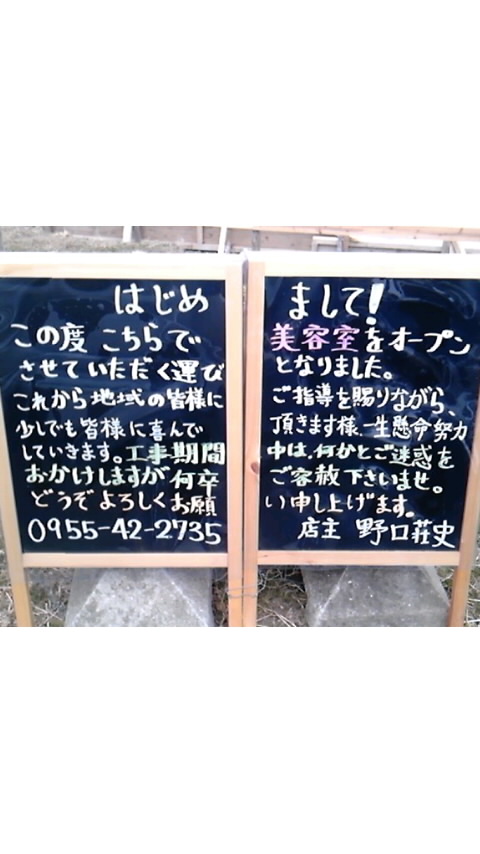 はじめまして!
この度こちらで美容室をオープン
させていただく運びとなりました。
これから地域の皆様にご指導を賜りながら、
少しでも皆様に喜んで頂きます様、一生懸命努力
していきます。工事期間中は、何かとご迷惑を
おかけしますが何卒ご容赦下さいませ。
どうぞよろしくお願い申し上げます。
0955-42-2735 店主 野口荘史